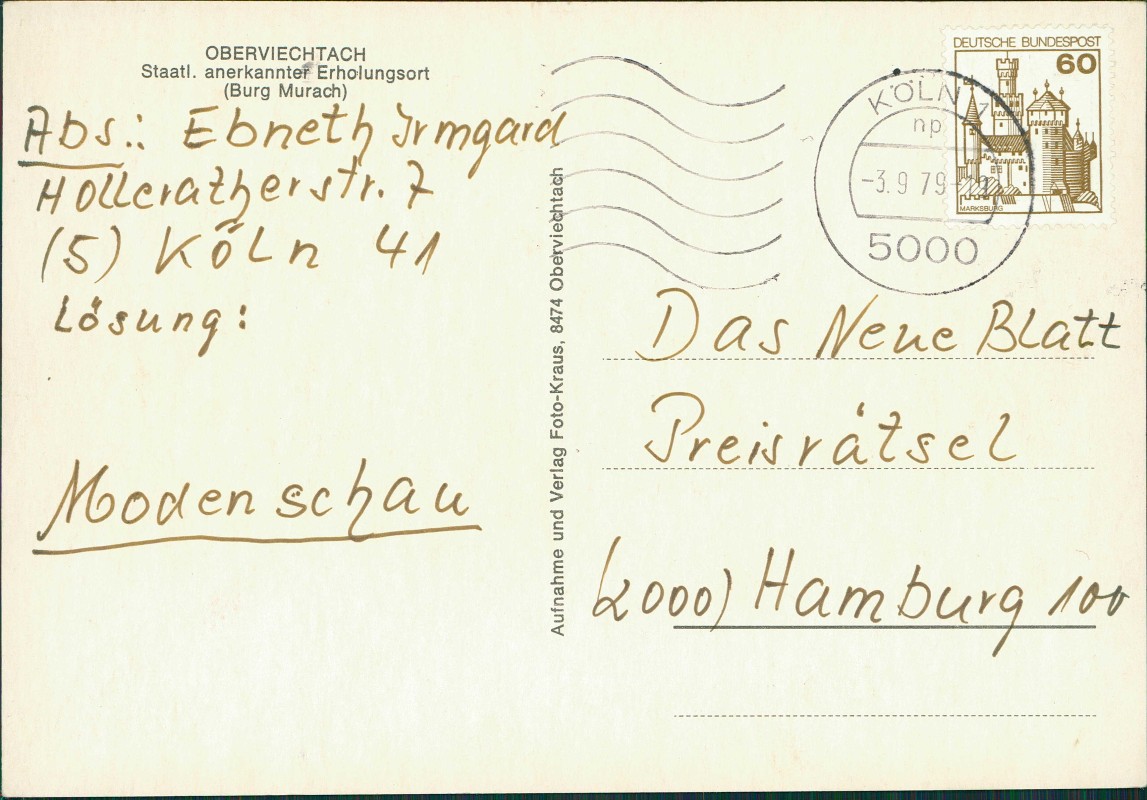 OBERVIECHTACH
Staatl. anerkannter Erholungsort
(Burg Murach)
Abs.: Ebneth Irmgard
Hollerather str. 7
(5) KÖLn 41
Lösung:
Modenschau
Aufnahme und Verlag Foto-Kraus, 8474 Oberviechtach
DEUTSCHE BUNDESPOST
60
MARKSBURG
KÖLN 1
np
-3.9 79-
5000
Das Neue Blatt
Preisrätsel
(2000) Hamburg 100